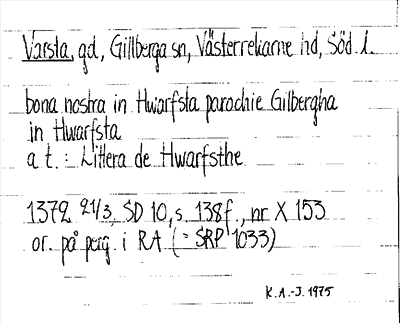 Varsta, gd, Gillberga sn, Västerrekarne hd, Söd. l.
bona nostra in Hwarfsta parochie Gilbergha
in Hwarfsta
a t. : Littera de Hwarfsthe
1372 21/3, SD 10, s. 138f., nr X 153
or. på perg. i RA (= SRP 1033)
K.A.-J. 1975